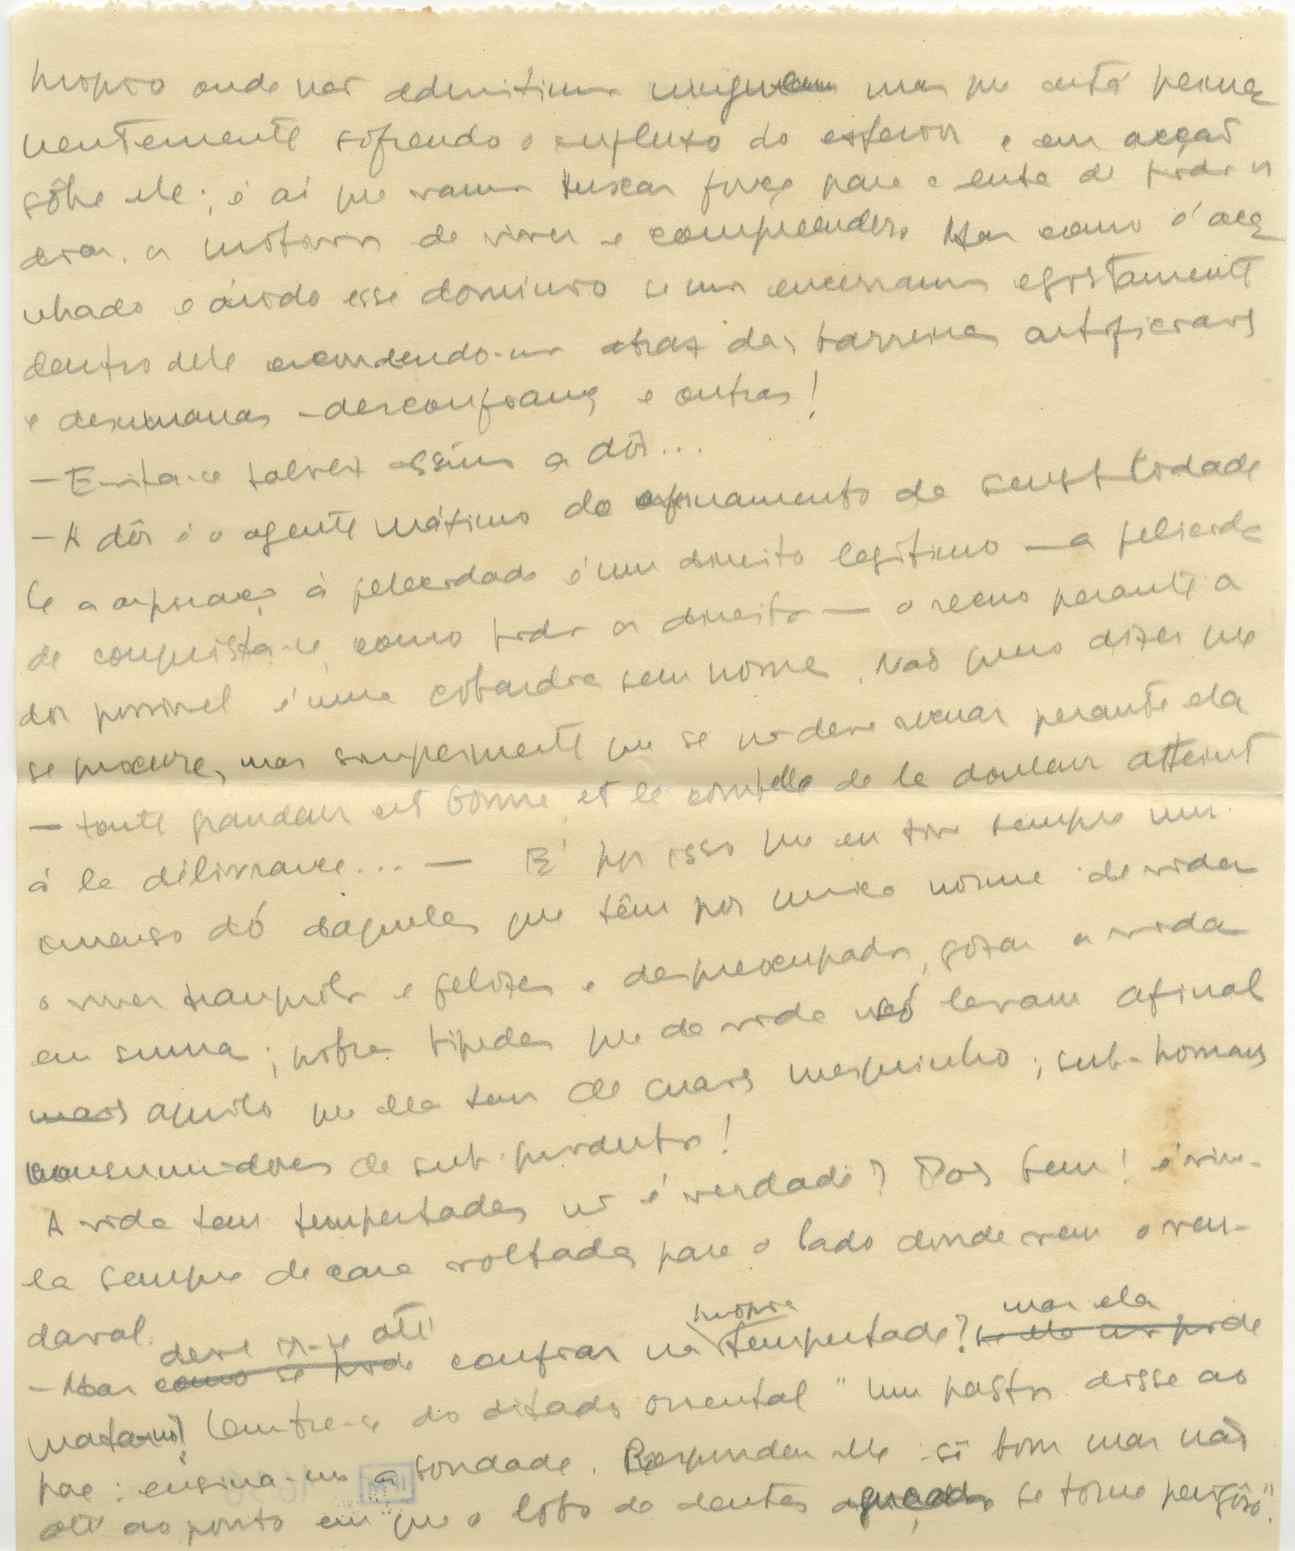 proprio onde não admitimos ninguem mas que está perma
nentemente sofrendo o influxo do exterior e em acção
sôbre ele; é aí que vamos buscar força para a luta de todos os
dias, os motivos de viver e compreender. Mas como é aca
nhado e árido esse dominio se nos encerramos egoistamente
dentro dele escondendo-nos atraz das barreiras artificiais
e desumanas - desconfiança e outras!
- Evita-se talvez assim a dôr...
- A dôr é o agente máximo do afinamento da sensibilidade
Se a aspiração á felicidade é um direito legitimo — a felicida
de conquista-se como todos os direitos — o receio perante a
dor possivel é uma cobardia sem nome. Não quero dizer que
se procure, mas simplesmente que se não deve recuar perante ela
— toute grandeur est bonne et le comble de la douleur atteint
à la délivrance... — E' por isso que eu tive sempre um
imenso dó daqueles que têm por unica norma de vida
o viver tranquilos e felizes e despreocupados, gozar a vida
em suma; pobres bipedes que da vida só levam afinal
mais aquilo que ela tem de mais mesquinho; sub-homens
consumidores de sub-produtos!
A vida tem tempestades não é verdade? Pois bem! é vive-
la sempre de cara voltada para o lado donde vem o ven-
daval.
- Mas como se pode deve ir-se até confiar na própria tempestade? se ela não pode mas ela
matar-nos! Lembre-se do ditado oriental "Um pastor disse ao
pae: ensina-me a bondade. Respondeu-lhe: sê bom mas não
até ao ponto em que o lobo de dentes aguçados se torne perigoso".